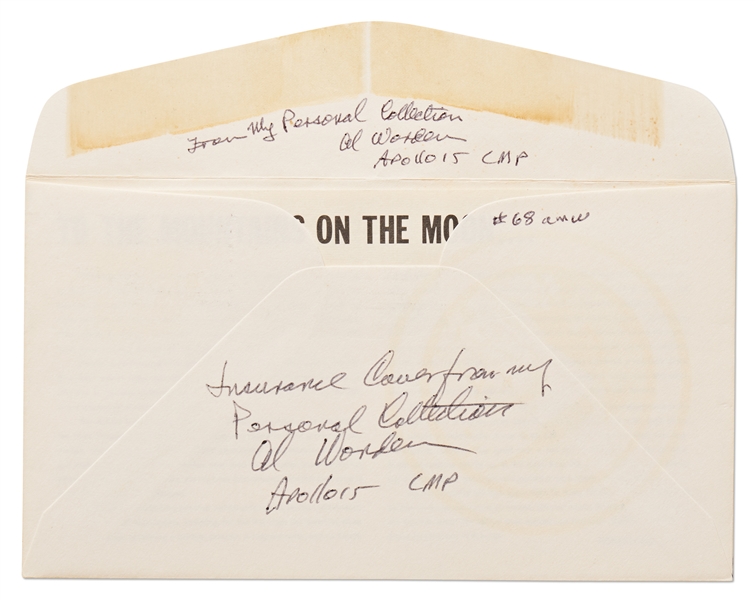 From My Personal Collection
Al Worden
Apollo 15 CMP
ON THE MO
#68 amw
Insurance Cover from my
Personal Collection
Al Worden
Apollo 15 CMP